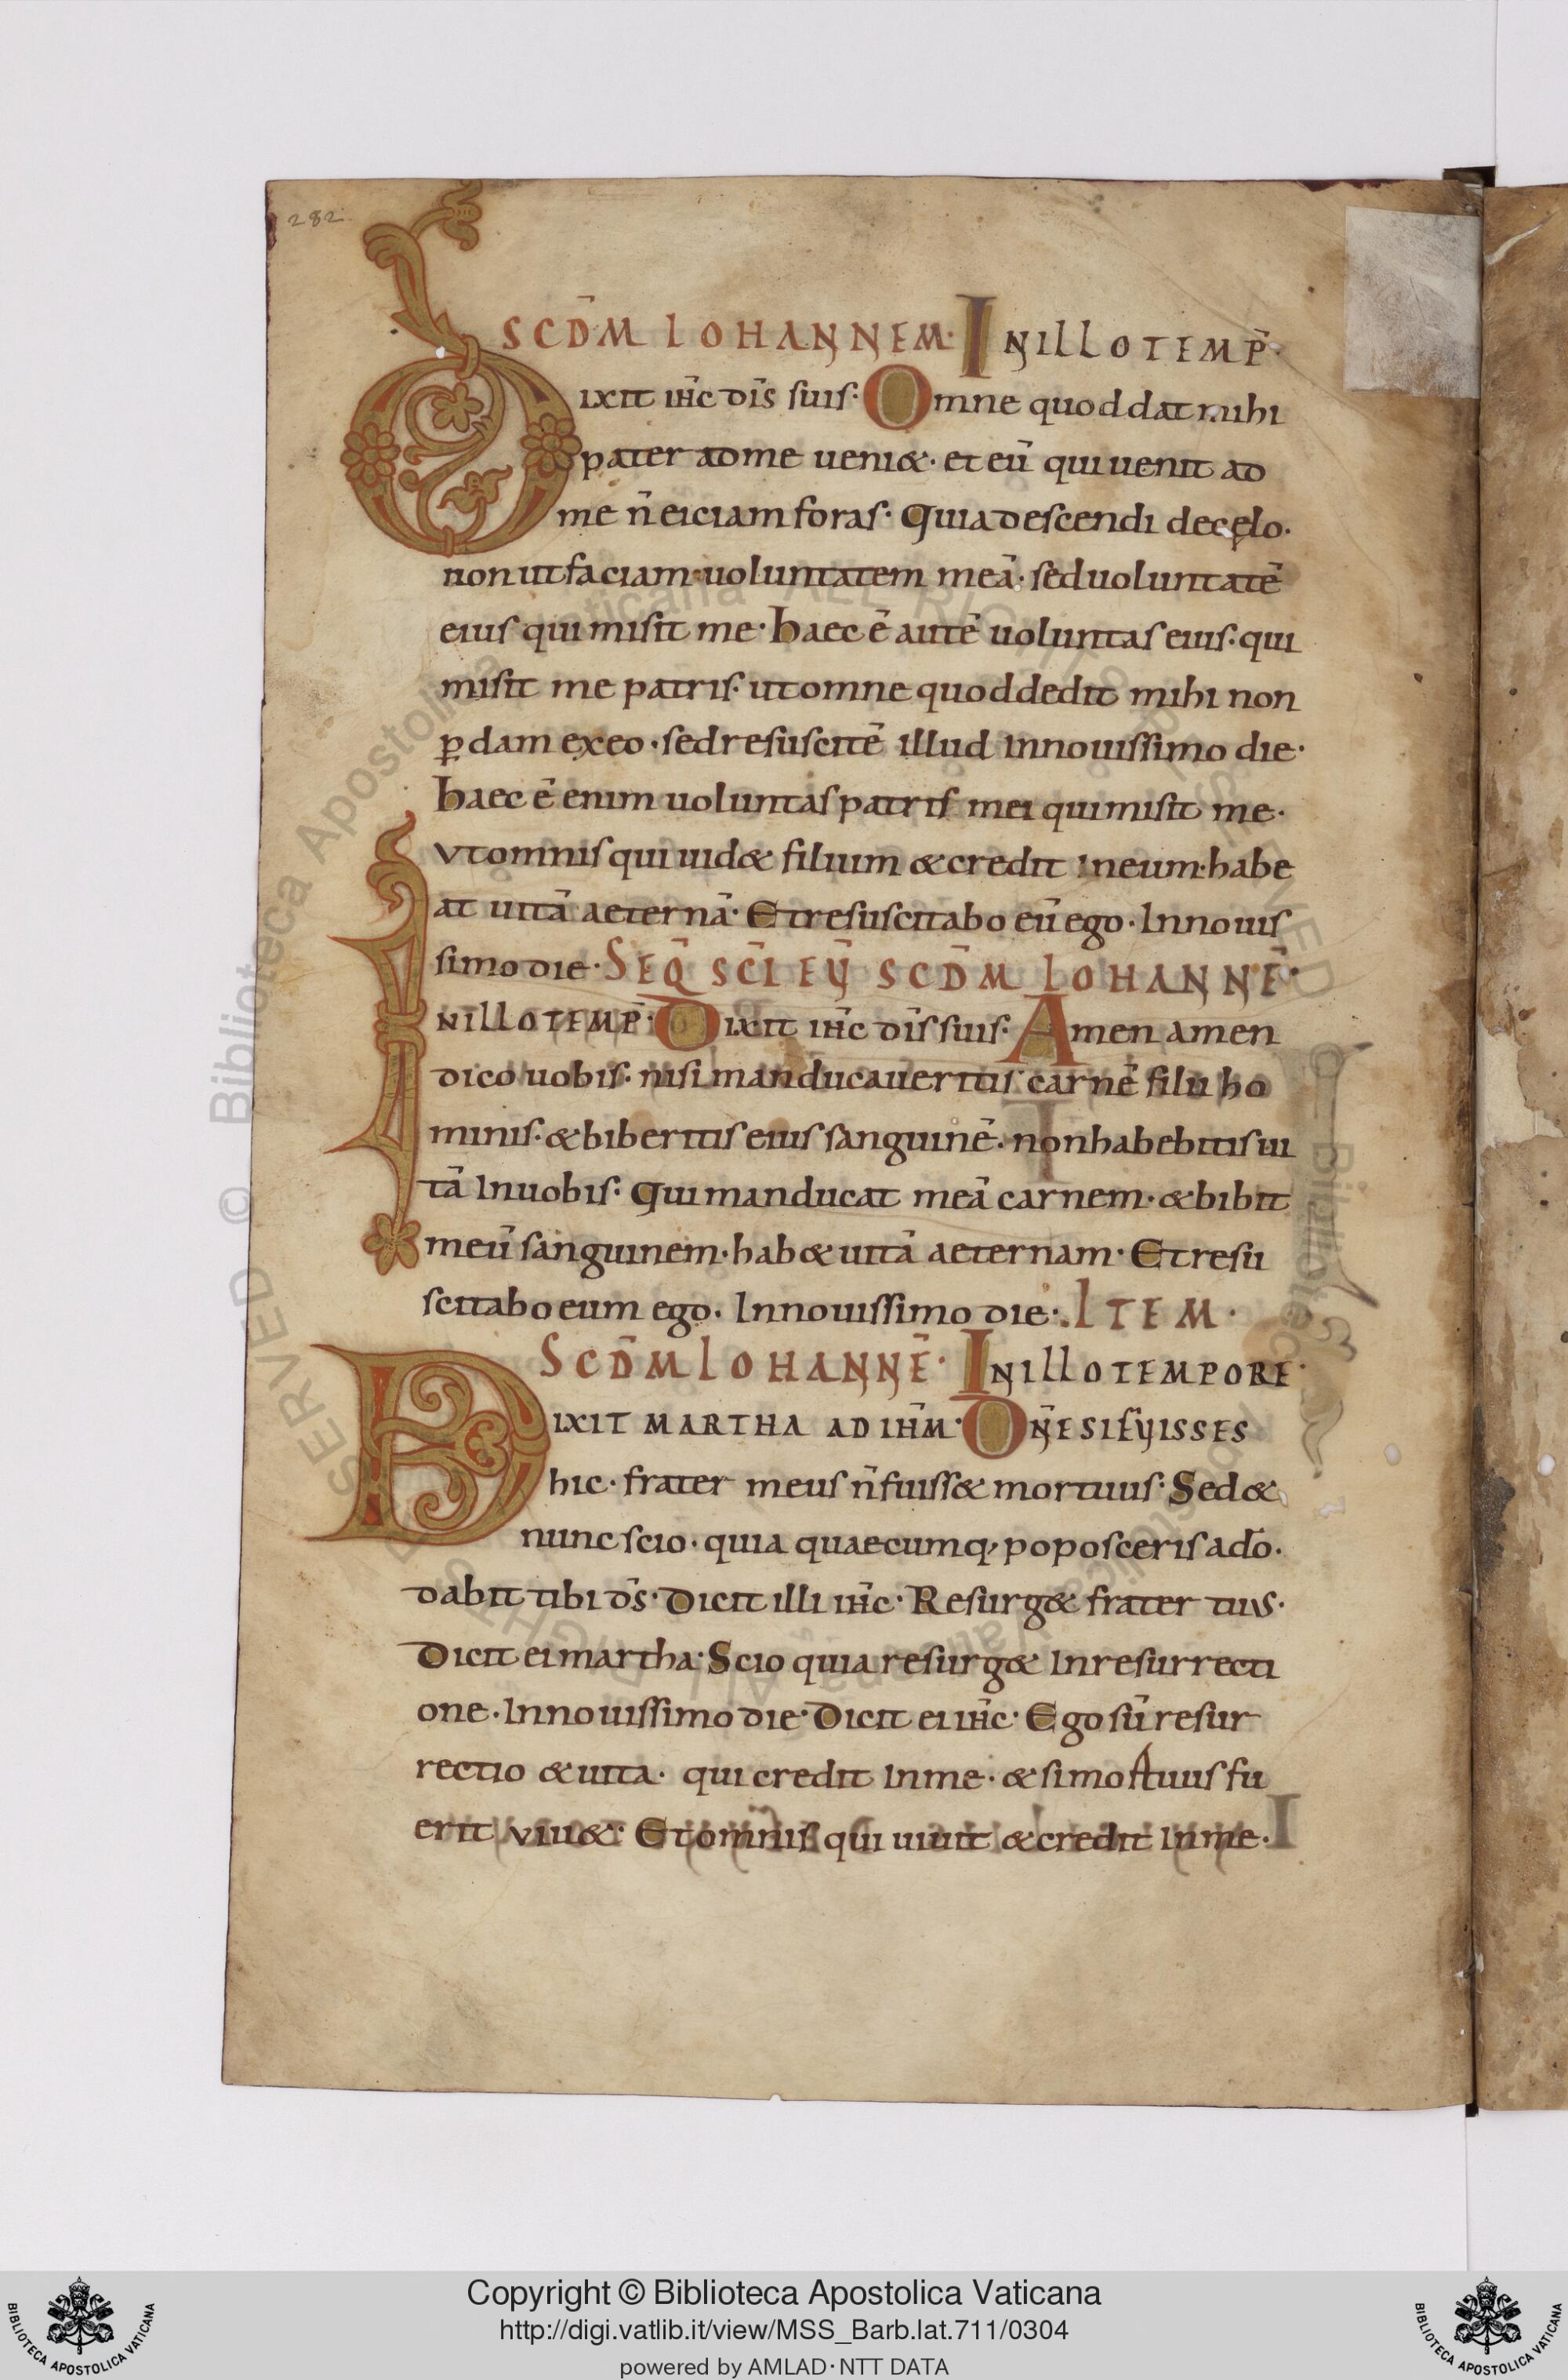 282
SCD̄M IOHANNEM· INILLOTEMP̄·
Dixit ih̄c dīs suis· Omne quod dat mihi
pater ad me ueni&· et eū qui uenit ad
me n̄ eiciam foras· Quia descendi de cęlo·
non ut faciam uoluntatem meā· sed uoluntatē
eius qui misit me· haec ē autē uoluntas eius· qui
misit me patris· ut omne quod dedit mihi non
ꝑdam ex eo· sed resuscitē illud In nouissimo die·
haec ē enim uoluntas patris mei qui misit me·
Vt omnis qui uid& filium & credit In eum· habe
at uitā aeternā· Et resuscitabo eū ego· In nouis
simo die· SEQ̄ SC̄I EṼ SCD̄M IOHANNĒ·
INILLOTEMP̄· Dixit ih̄c dīs suis· Amen amen
dico uobis· nisi manducaueritis carnē filii ho
minis· & biberitis eius sanguinē· non habebitis ui
tā In uobis· Qui manducat meā carnem· & bibit
meū sanguinem· hab& uitā aeternam· Et resu
scitabo eum ego· In nouissimo die· ITEM·
SCD̄M IOHANNĒ· INILLOTEMPORE·
DIXIT MARTHA AD IH̄M· DN̄E SI FVISSES
hic· frater meus n̄ fuiss& mortuus· Sed &
nunc scio· quia quaecumq; poposceris a dō·
dabit tibi d̄s· Dicit illi ih̄c· Resurg& frater tuus·
Dicit ei martha· Scio quia resurg& In resurrecti
one· In nouissimo die· Dicit ei ih̄c· Ego sū resur
rectio & uita· qui credit In me· & si mortuus fu
erit viu&· Et omnis qui uiuit & credit In me·
Copyright © Biblioteca Apostolica Vaticana
http://digi.vatlib.it/view/MSS_Barb.lat.711/0304
powered by AMLAD·NTT DATA
BIBLIOTECA APOSTOLICA VATICANA
BIBLIOTECA APOSTOLICA VATICANA